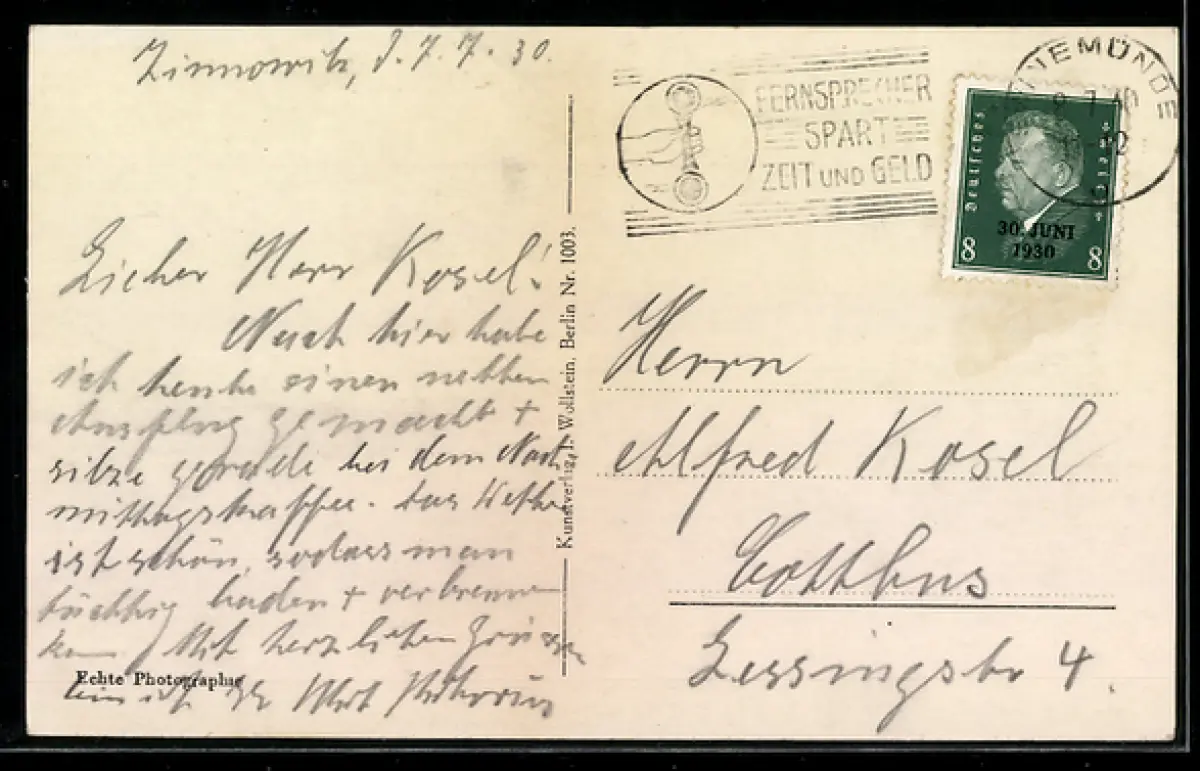 Zinnowitz, d. 7. 7. 30.
Lieber Herr Kosel!
Nach hier habe
ich heute einen netten
Ausflug gemacht +
sitze gerade bei dem Nach
mittagskaffee. Das Wetter
ist schön, sodass man
tüchtig baden + verbrennen
kann. Mit herzlichen Grüssen
bin ich Ihr
Echte Photographie
Kunstverlag J. Wollstein, Berlin Nr. 1003.
FERNSPRECHER
SPART
ZEIT UND GELD
NEMÜNDE
Deutsches Reich
30. JUNI
1930
8 8
Herrn
Alfred Kosel
Cottbus
Lessingstr 4.